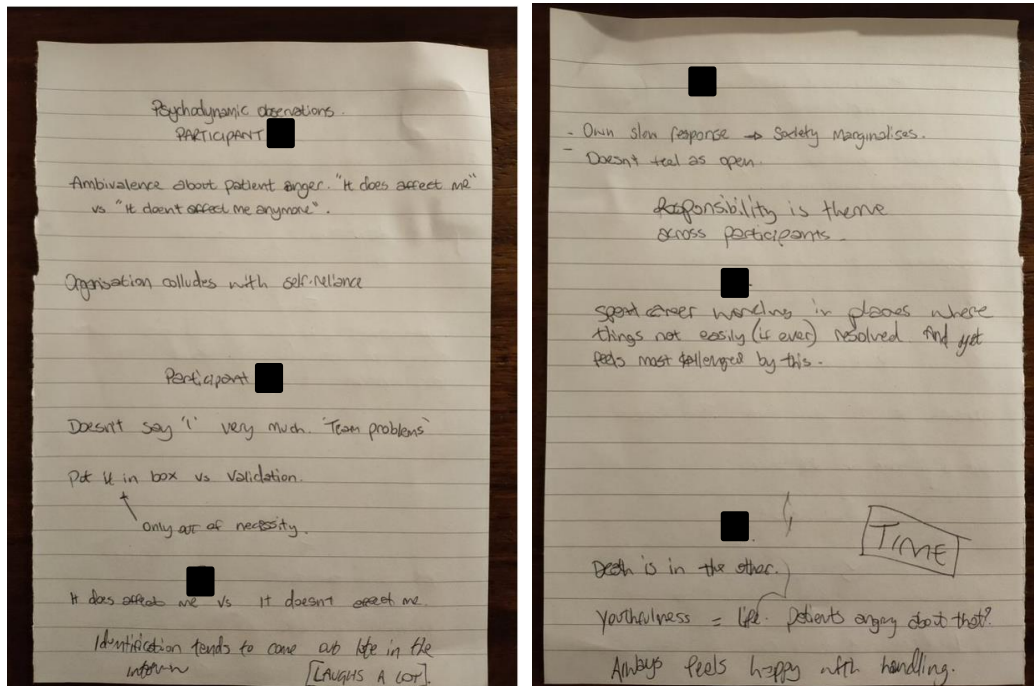 Psychodynamic observations.
PARTICIPANT
Ambivalence about patient anger. "It does affect me"
vs "It doesn't affect me anymore".
Organisation colludes with self-reliance
Participant
Doesn't say 'I' very much. 'Team problems'
Put it in box vs validation.
Only out of necessity.
It does affect me vs It doesn't affect me.
Identification tends to come out late in the
[LAUGHS A LOT].
- Own slow response → Society marginalises.
- Doesn't feel as open.
Responsibility is theme
across participants.
spent career working in places where
things not easily (if ever) resolved. And yet
feels most challenged by this.
TIME
Death is in the other.
Youthfulness = life. Patients angry about that?
Always feels happy with handling.